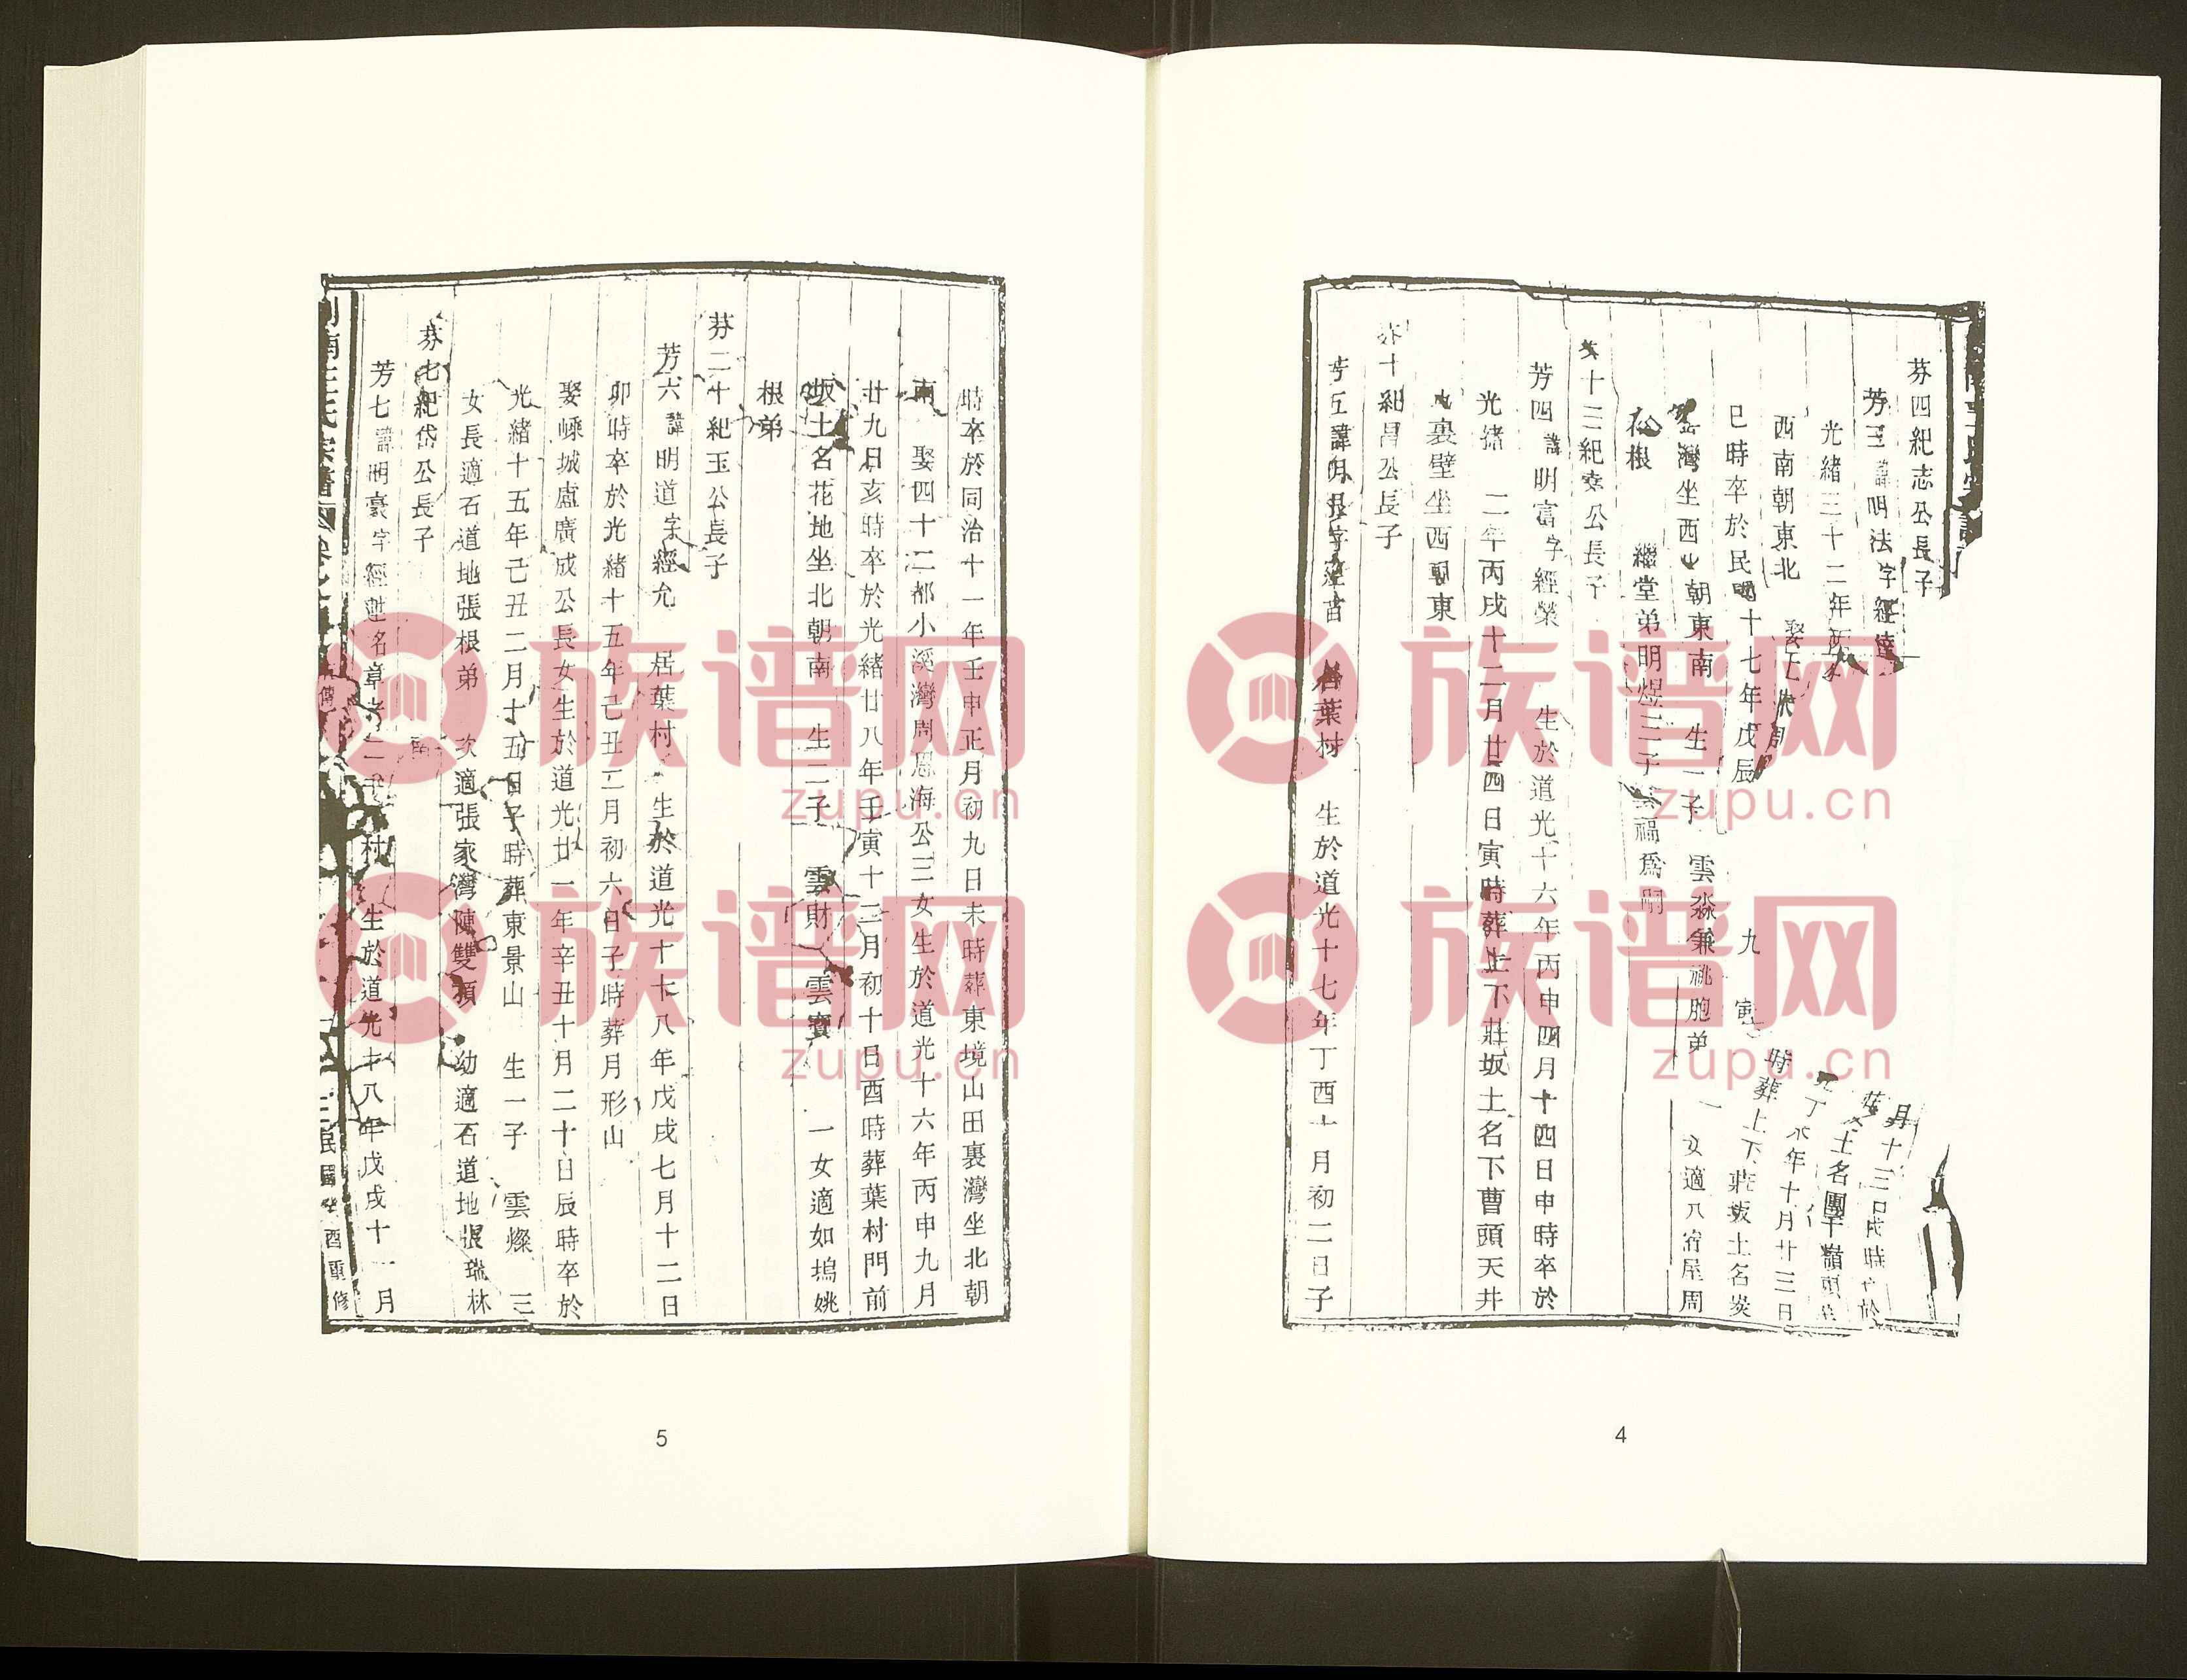 芬四紀志公長子
芳三諱明法字經達
月十三日 時卒於
光緒三十二年
土名團 嶺頭
西南朝東北 娶
年十月廿三日
巳時卒於民國十七年戊辰 九 寅時葬上下莊坂土名炭
窰灣坐西 朝東南 生一子 雲淼兼祧胞弟 一女適 宿屋周
松根 繼堂弟明煜三子雲福爲嗣
十三紀 公長子
芳四諱明富字經榮 生於道光十六年丙申四月十四日申時卒於
光緒 二年丙戌十二月廿四日寅時葬上下莊坂土名下曹頭天井
裏壁坐西朝東
芬十紀昌公長子
芳五諱明 字 居葉村 生於道光十七年丁酉十月初二日子
4
時卒於同治十一年壬申正月初九日未時葬東境山田裏灣坐北朝
南 娶四十二都小溪灣周恩海公三女生於道光十六年丙申九月
廿九日亥時卒於光緒廿八年壬寅十二月初十日酉時葬葉村門前
坂土名花地坐北朝南 生二子 雲財 雲寶 一女適如塢姚
根弟
芬二十紀玉公長子
芳六諱明道字經允 居葉村 生於道光十八年戊戌七月十二日
卯時卒於光緒十五年己丑二月初六日子時葬月形山
娶嵊城盧廣成公長女生於道光廿一年辛丑十月二十日辰時卒於
光緒十五年己丑二月十五日子時葬東景山 生一子 雲燦 三
女長適石道地張根弟 次適張家灣陳雙預 幼適石道地張瑞林
芬七紀岱公長子
芳七諱明豪字經魁名章 村 生於道光十八年戊戌十一月
南王氏宗譜 卷 民國癸酉重修
5
族谱网
zupu.cn
族谱网
zupu.cn
族谱网
zupu.cn
族谱网
zupu.cn